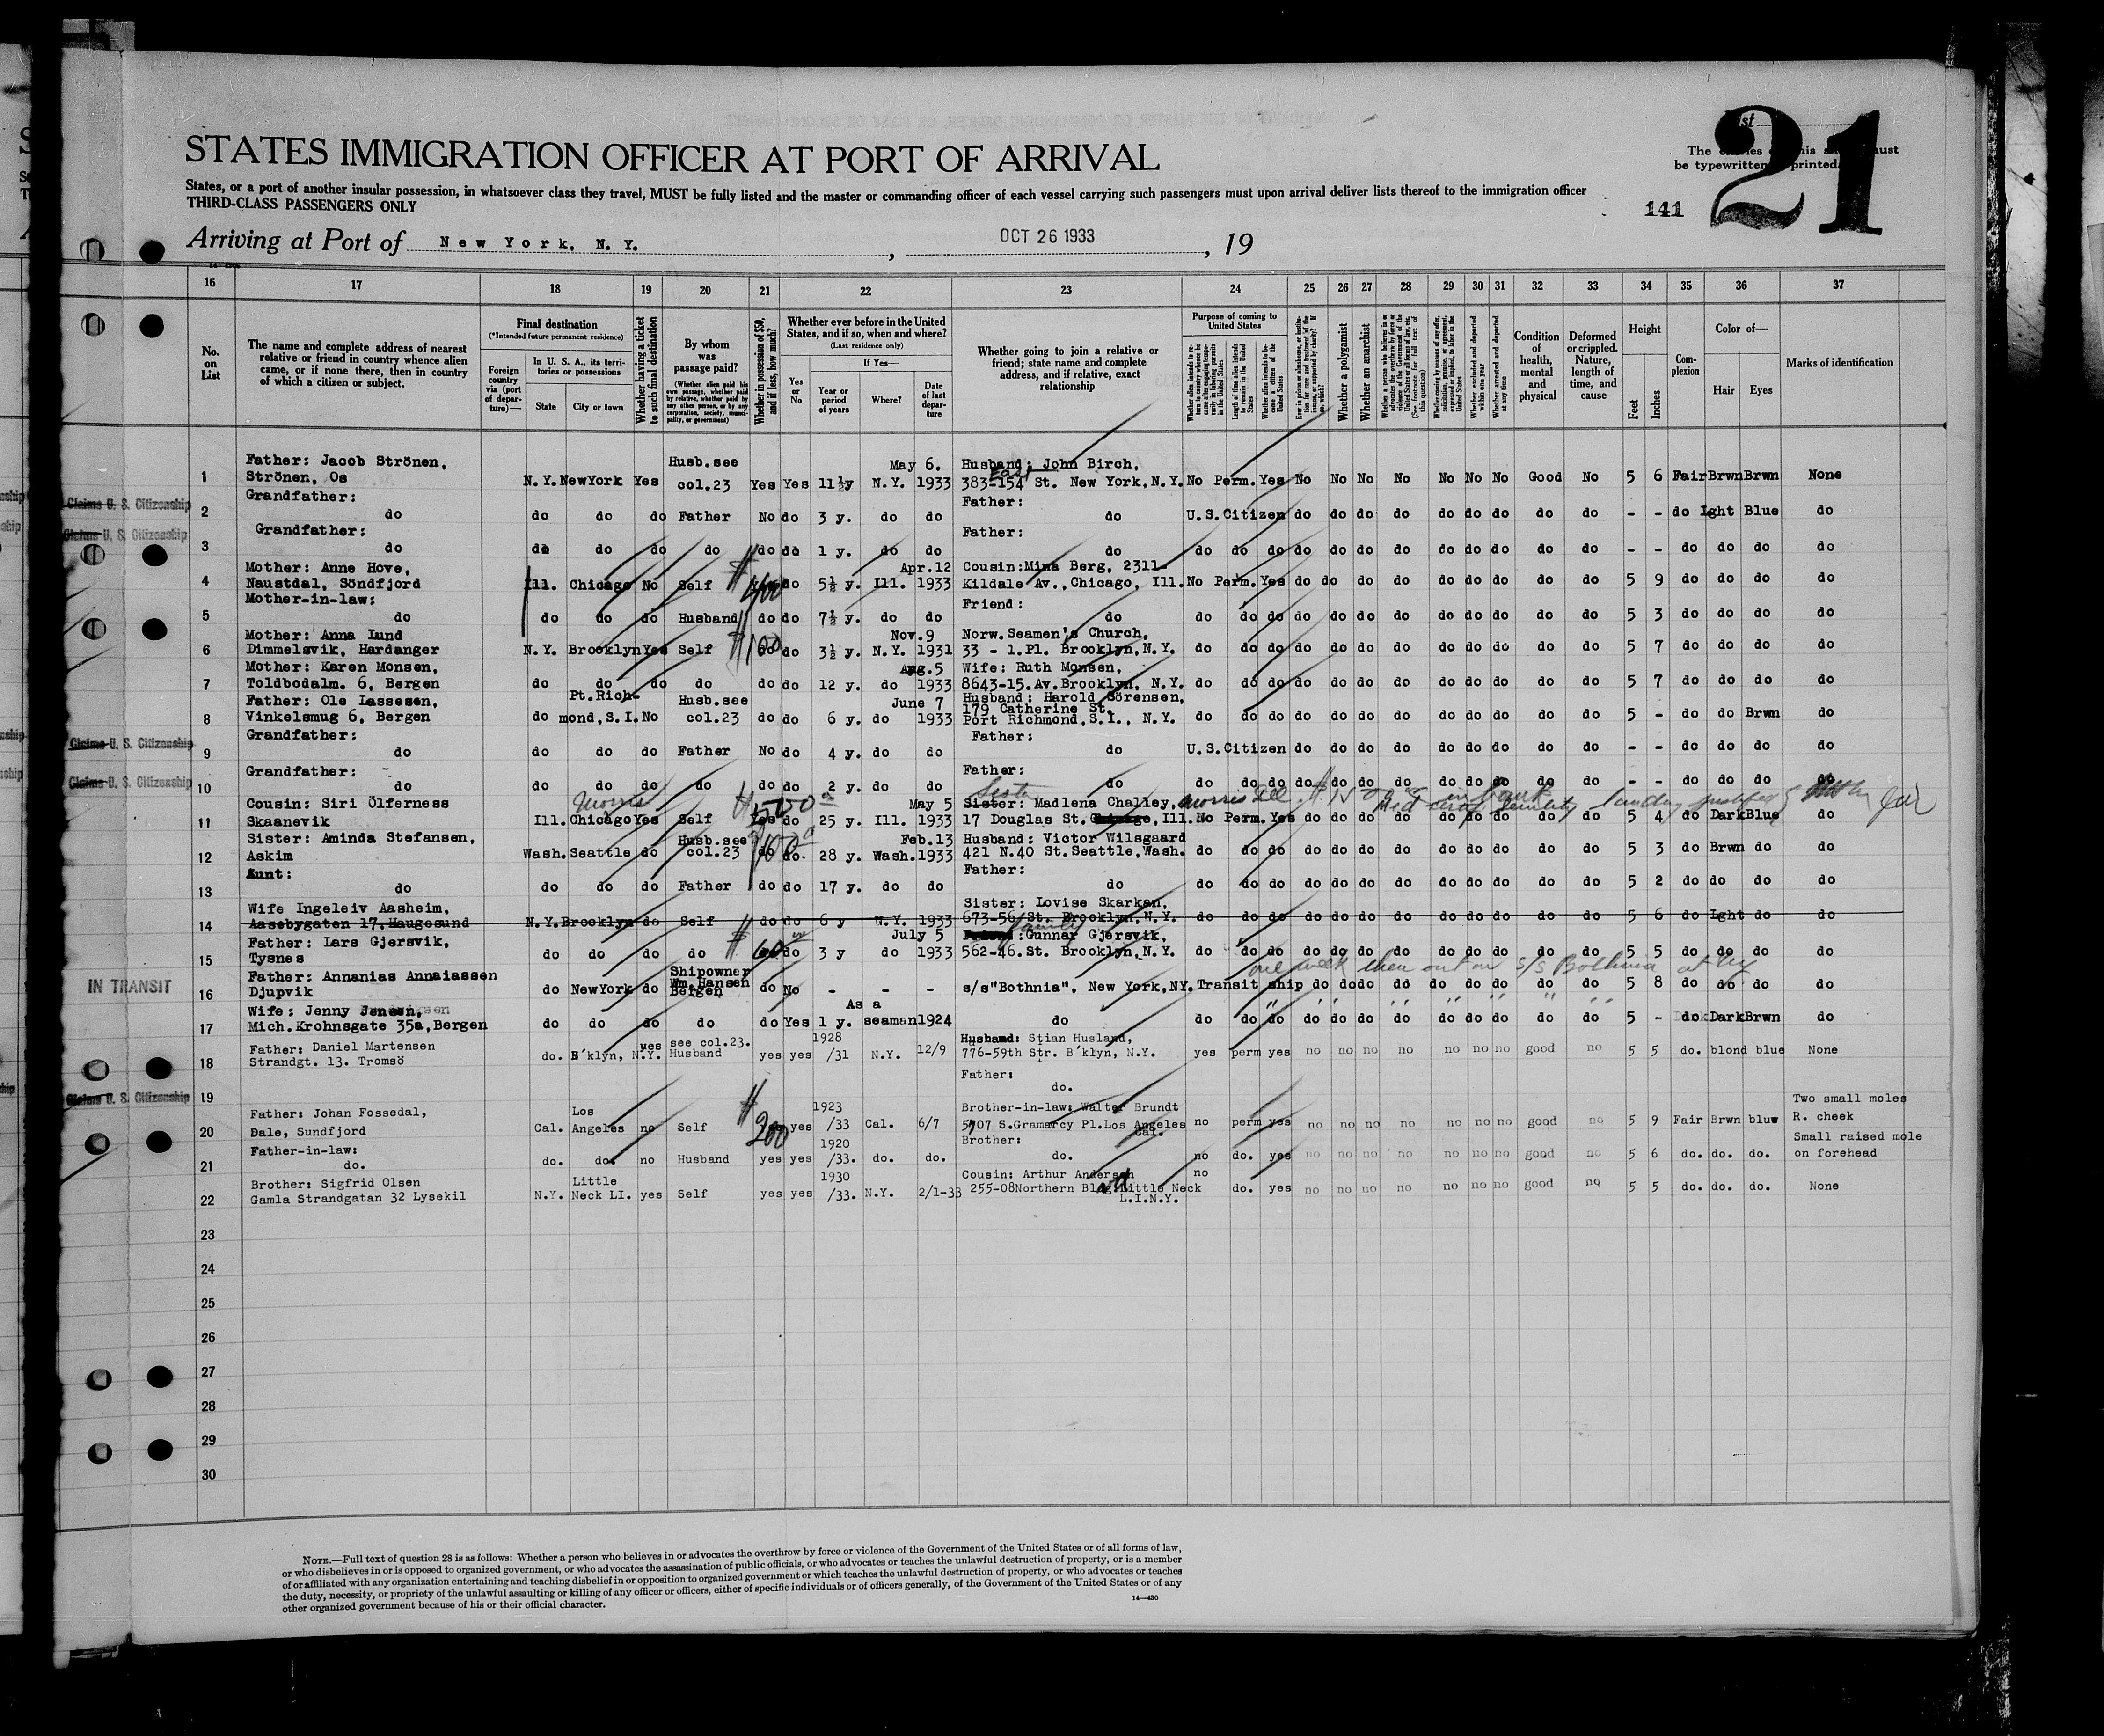 21
List
The entries on this sheet must
be typewritten or printed.
STATES IMMIGRATION OFFICER AT PORT OF ARRIVAL
States, or a port of another insular possession, in whatsoever class they travel, MUST be fully listed and the master or commanding officer of each vessel carrying such passengers must upon arrival deliver lists thereof to the immigration officer
THIRD-CLASS PASSENGERS ONLY
141
Arriving at Port of New York, N. Y. , OCT 26 1933 , 19
16 17 18 19 20 21 22 23 24 25 26 27 28 29 30 31 32 33 34 35 36 37
No. on List
The name and complete address of nearest relative or friend in country whence alien came, or if none there, then in country of which a citizen or subject.
Final destination
(*Intended future permanent residence)
Foreign country via (port of departure)—
In U. S. A., its territories or possessions
State City or town
Whether having a ticket to such final destination
By whom was passage paid?
(Whether alien paid his own passage, whether paid by relative, whether paid by any other person, or by any corporation, society, municipality, or government)
Whether in possession of $50, and if less, how much?
Whether ever before in the United States, and if so, when and where?
(Last residence only)
Yes or No
If Yes—
Year or period of years Where? Date of last departure
Whether going to join a relative or friend; state name and complete address, and if relative, exact relationship
Purpose of coming to United States
Length of time alien intends to remain in the United States
Whether alien intends to become a citizen of the United States
Whether a polygamist
Whether an anarchist
(See footnote for full text of this question)
Whether excluded and deported within one year
Whether arrested and deported at any time
Condition of health, mental and physical
Deformed or crippled. Nature, length of time, and cause
Height
Feet Inches
Complexion
Color of—
Hair Eyes
Marks of identification
Father: Jacob Strönen, Husb.see May 6. Husband: John Birch,
1 Strönen, Os N.Y. NewYork Yes col.23 Yes Yes 11½y N.Y. 1933 383-East 154 St. New York,N.Y. No Perm. Yes No No No No No No No Good No 5 6 Fair Brwn Brwn None
Claims U. S. Citizenship
Grandfather: Father:
2 do do do do Father No do 3 y. do do do U.S.Citizen do do do do do do do do do - - do Lght Blue do
Claims U. S. Citizenship
Grandfather: Father:
3 do do do do do do do 1 y. do do do do do do do do do do do do do do do - - do do do do
Mother: Anne Hove, Apr.12 Cousin:Mina Berg, 2311
4 Naustdal, Söndfjord Ill. Chicago No Self $400 do 5½ y. Ill. 1933 Kildale Av.,Chicago, Ill. No Perm. Yes do do do do do do do do do 5 9 do do do do
Mother-in-law: Friend:
5 do do do do Husband do do 7½ y. do do do do do do do do do do do do do do do 5 3 do do do do
Mother: Anna Lund Nov.9 Norw.Seamen's Church,
6 Dimmelsvik, Hardanger N.Y. Brooklyn Yes Self $100 do do 3½ y. N.Y. 1931 33 - 1.Pl. Brooklyn,N.Y. do do do do do do do do do do do do 5 7 do do do do
Mother: Karen Monsen, Aug.5 Wife: Ruth Monsen,
7 Toldbodalm. 6, Bergen do do do do do do 12 y. do 1933 8643-15.Av.Brooklyn, N.Y. do do do do do do do do do do do do 5 7 do do do do
Father: Ole Lassesen, Pt.Rich- Husb.see June 7 Husband: Harold Sörensen,
179 Catherine St.
8 Vinkelsmug 6, Bergen do mond,S.I. No col.23 do do 6 y. do 1933 Port Richmond,S.I., N.Y. do do do do do do do do do do do do 5 - do do Brwn do
Claims U. S. Citizenship
Grandfather: Father:
9 do do do do Father No do 4 y. do do do U.S.Citizen do do do do do do do do do - - do do do do
Claims U. S. Citizenship
Grandfather: Father:
10 do do do do do do do 2 y. do do do do do do do do do do do do do do do - - do do do do
Cousin: Siri Ölferness Morris $500 May 5 Sister Sister: Madlena Challey, Morris Ill.
11 Skaanevik Ill. Chicago Yes Self Yes do 25 y. Ill. 1933 17 Douglas St. Chicago, Ill. No Perm. Yes do do do do do do do do do 5 4 do Dark Blue do
Sister: Aminda Stefansen, Husb.see $100 Feb.13 Husband: Victor Wilsgaard
12 Askim Wash. Seattle do col.23 do do. 28 y. Wash. 1933 421 N.40 St.Seattle,Wash. do do do do do do do do do do do do 5 3 do Brwn do do
Aunt: Father:
13 do do do do Father do do 17 y. do do do do do do do do do do do do do do do 5 2 do do do do
Wife Ingeleiv Aasheim, Sister: Lovise Skarkan,
14 Aasebygaten 17,Haugesund N.Y. Brooklyn do Self do do 6 y N.Y. 1933 673-56/St. Brooklyn,N.Y. do do do do do do do do do do do do 5 6 do Lght do do
Father: Lars Gjersvik, July 5 family :Gunnar Gjersvik,
15 Tysnes do do do do $60 do 3 y do 1933 562-46.St. Brooklyn,N.Y. do do do do do do do do do do do do 5 5 do do do do
one week then out on S/S Bothnia at Ny
IN TRANSIT
Father: Annanias Annaiassen Shipowner
Wm.Hansen
16 Djupvik do NewYork do Bergen do No - - - s/s"Bothnia", New York,NY. Transit ship do do do do do do do do do 5 8 do do do do
Wife: Jenny Jensen, As a
17 Mich.Krohnsgate 35a,Bergen do do do do do Yes 1 y. seaman 1924 do do do do do do do do do do do do do 5 - do Dark Brwn do
Father: Daniel Martensen yes see col.23. 1928 Husband: Stian Husland,
18 Strandgt. 13. Tromsö do. B'klyn, N.Y. Husband yes yes /31 N.Y. 12/9 776-59th Str. B'klyn, N.Y. yes perm yes no no no no no no no good no 5 5 do. blond blue None
Claims U. S. Citizenship
Father:
19 do.
Father: Johan Fossedal, Los $200 1923 Brother-in-law: Walter Brundt Two small moles
20 Dale, Sundfjord Cal. Angeles no Self yes /33 Cal. 6/7 5907 S.Gramarcy Pl.Los Angeles Cal. no perm yes no no no no no no no good no 5 9 Fair Brwn bluw R. cheek
Father-in-law: 1920 Brother: Small raised mole
21 do. do. do. no Husband yes yes /33. do. do. do. no do. yes no no no no no no no good no 5 6 do. do. do. on forehead
Brother: Sigfrid Olsen Little 1930 Cousin: Arthur Anderson no
22 Gamla Strandgatan 32 Lysekil N.Y. Neck LI. yes Self yes yes /33. N.Y. 2/1-33 255-08Northern Blvd Little Neck L.I.N.Y. do. yes no no no no no no no good no 5 5 do. do. do. None
23
24
25
26
27
28
29
30
NOTE.—Full text of question 28 is as follows: Whether a person who believes in or advocates the overthrow by force or violence of the Government of the United States or of all forms of law,
or who disbelieves in or is opposed to organized government, or who advocates the assassination of public officials, or who advocates or teaches the unlawful destruction of property, or is a member
of or affiliated with any organization entertaining and teaching disbelief in or opposition to organized government or which teaches the unlawful destruction of property, or who advocates or teaches
the duty, necessity, or propriety of the unlawful assaulting or killing of any officer or officers, either of specific individuals or of officers generally, of the Government of the United States or of any
other organized government because of his or their official character.
14—430